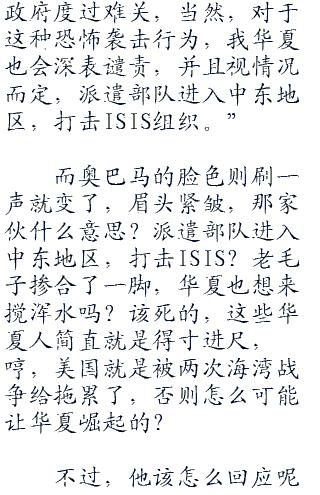 政府度过难关，当然，对于
这种恐怖袭击行为，我华夏
也会深表谴责，并且视情况
而定，派遣部队进入中东地
区，打击ISIS组织。”
而奥巴马的脸色则刷一
声就变了，眉头紧皱，那家
伙什么意思？派遣部队进入
中东地区，打击ISIS？老毛
子掺合了一脚，华夏也想来
搅浑水吗？该死的，这些华
夏人简直就是得寸进尺，
哼，美国就是被两次海湾战
争给拖累了，否则怎么可能
让华夏崛起的？
不过，他该怎么回应呢